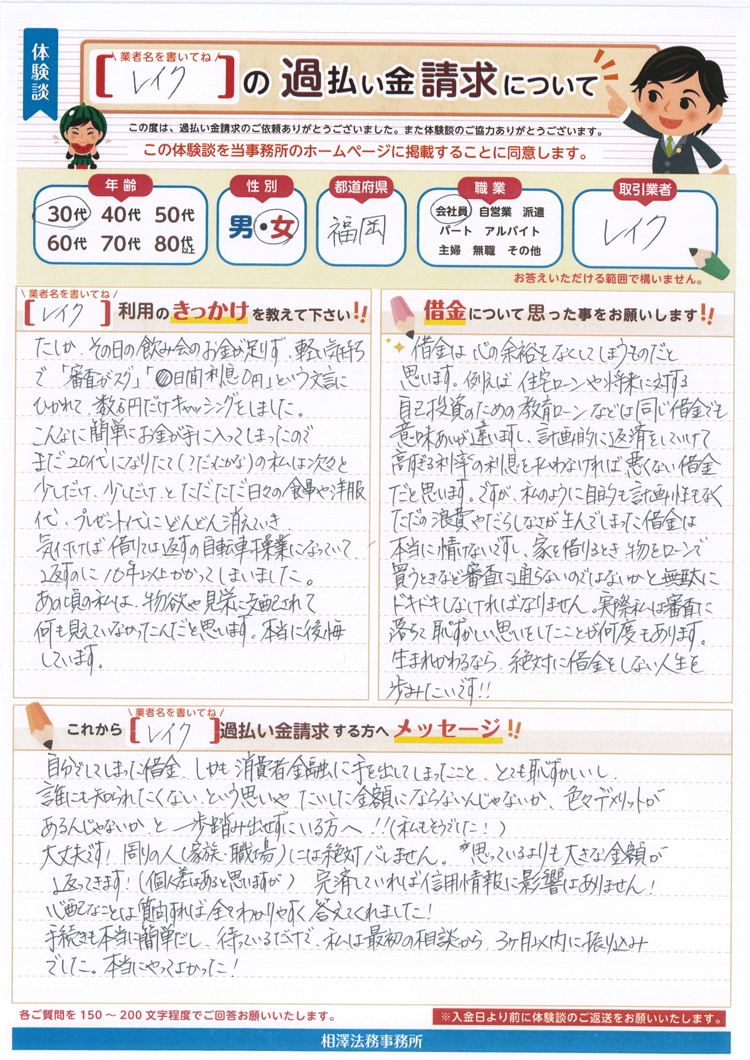 体験談
業者名を書いてね
[レイク]の過払い金請求について
この度は、過払い金請求のご依頼ありがとうございました。また体験談のご協力ありがとうございます。
この体験談を当事務所のホームページに掲載することに同意します。
年齢
30代 40代 50代
60代 70代 80代以上
性別
男・女
都道府県
福岡
職業
会社員 自営業 派遣
パート アルバイト
主婦 無職 その他
取引業者
レイク
お答えいただける範囲で構いません。
業者名を書いてね
[レイク]利用のきっかけを教えて下さい!!
たしか、その日の飲み会のお金が足りず、軽い気持ち
で「審査がスグ」「日間利息0円」という文言に
ひかれて、数万円だけキャッシングをしました。
こんなに簡単にお金が手に入ってしまったので
まだ20代になりたて(?だったかな)の私は次々と
少しだけ、少しだけ、とただただ日々の食事や洋服
代、プレゼント代にどんどん消えていき、
気付けば借りては返すの自転車操業になっていて、
返すのに10年以上かかってしまいました。
あの頃の私は、物欲や見栄に支配されて
何も見えていなかったんだと思います。本当に後悔
しています。
借金について思った事をお願いします!!
借金は心の余裕をなくしてしまうものだと
思います。例えば住宅ローンや将来に対する
自己投資のための教育ローンなどは同じ借金でも
意味あいが違いますし、計画的に返済をしていけて
高すぎる利率の利息を払わなければ悪くない借金
だと思います。ですが、私のように目的も計画性もなく
ただの浪費やだらしなさが生んでしまった借金は
本当に情けないですし、家を借りるとき、物をローンで
買うときなど審査に通らないのではないかと無駄に
ドキドキしなければなりません。実際私は審査に
落ちて恥ずかしい思いをしたことが何度もあります。
生まれかわるなら、絶対に借金をしない人生を
歩みたいです!!
業者名を書いてね
これから[レイク]過払い金請求する方へメッセージ!!
自分でしてしまった借金、しかも消費者金融に手を出してしまったこと、とても恥ずかしいし、
誰にも知られたくない、という思いや、たいした金額にならないんじゃないか、色々デメリットが
あるんじゃないか、と一歩踏み出せずにいる方へ!!(私もそうでした!)
大丈夫です!周りの人(家族・職場)には絶対バレません。思っているよりも大きな金額が
返ってきます!(個人差はあると思いますが)完済していれば信用情報に影響はありません!
心配なことは質問すれば全てわかりやすく答えてくれました!
手続きも本当に簡単だし、待っているだけで、私は最初の相談から、3ヶ月以内に振り込み
でした。本当にやってよかった!
各ご質問を150～200文字程度でご回答お願いいたします。
※入金日より前に体験談のご返送をお願いいたします。
相澤法務事務所